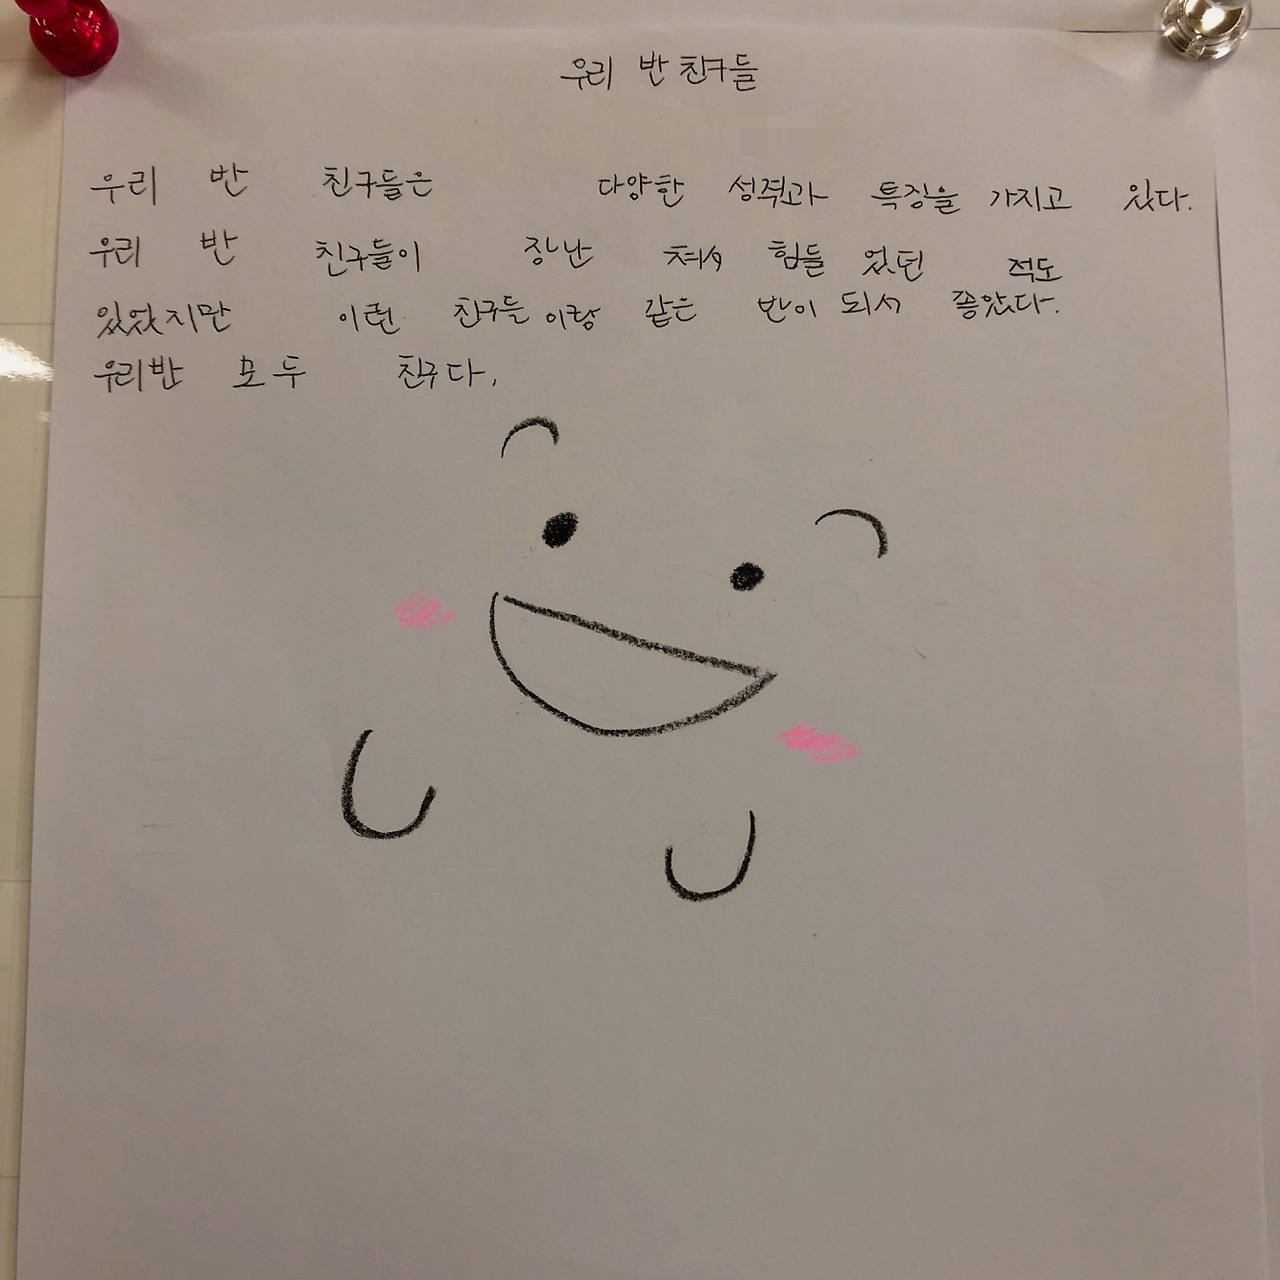 우리 반 친구들
우리 반 친구들은 다양한 성격과 특징을 가지고 있다.
우리 반 친구들이 장난 쳐서 힘들 었던 적도
있었지만 이런 친구들 이랑 같은 반이 되서 좋았다.
우리반 모두 친구다.